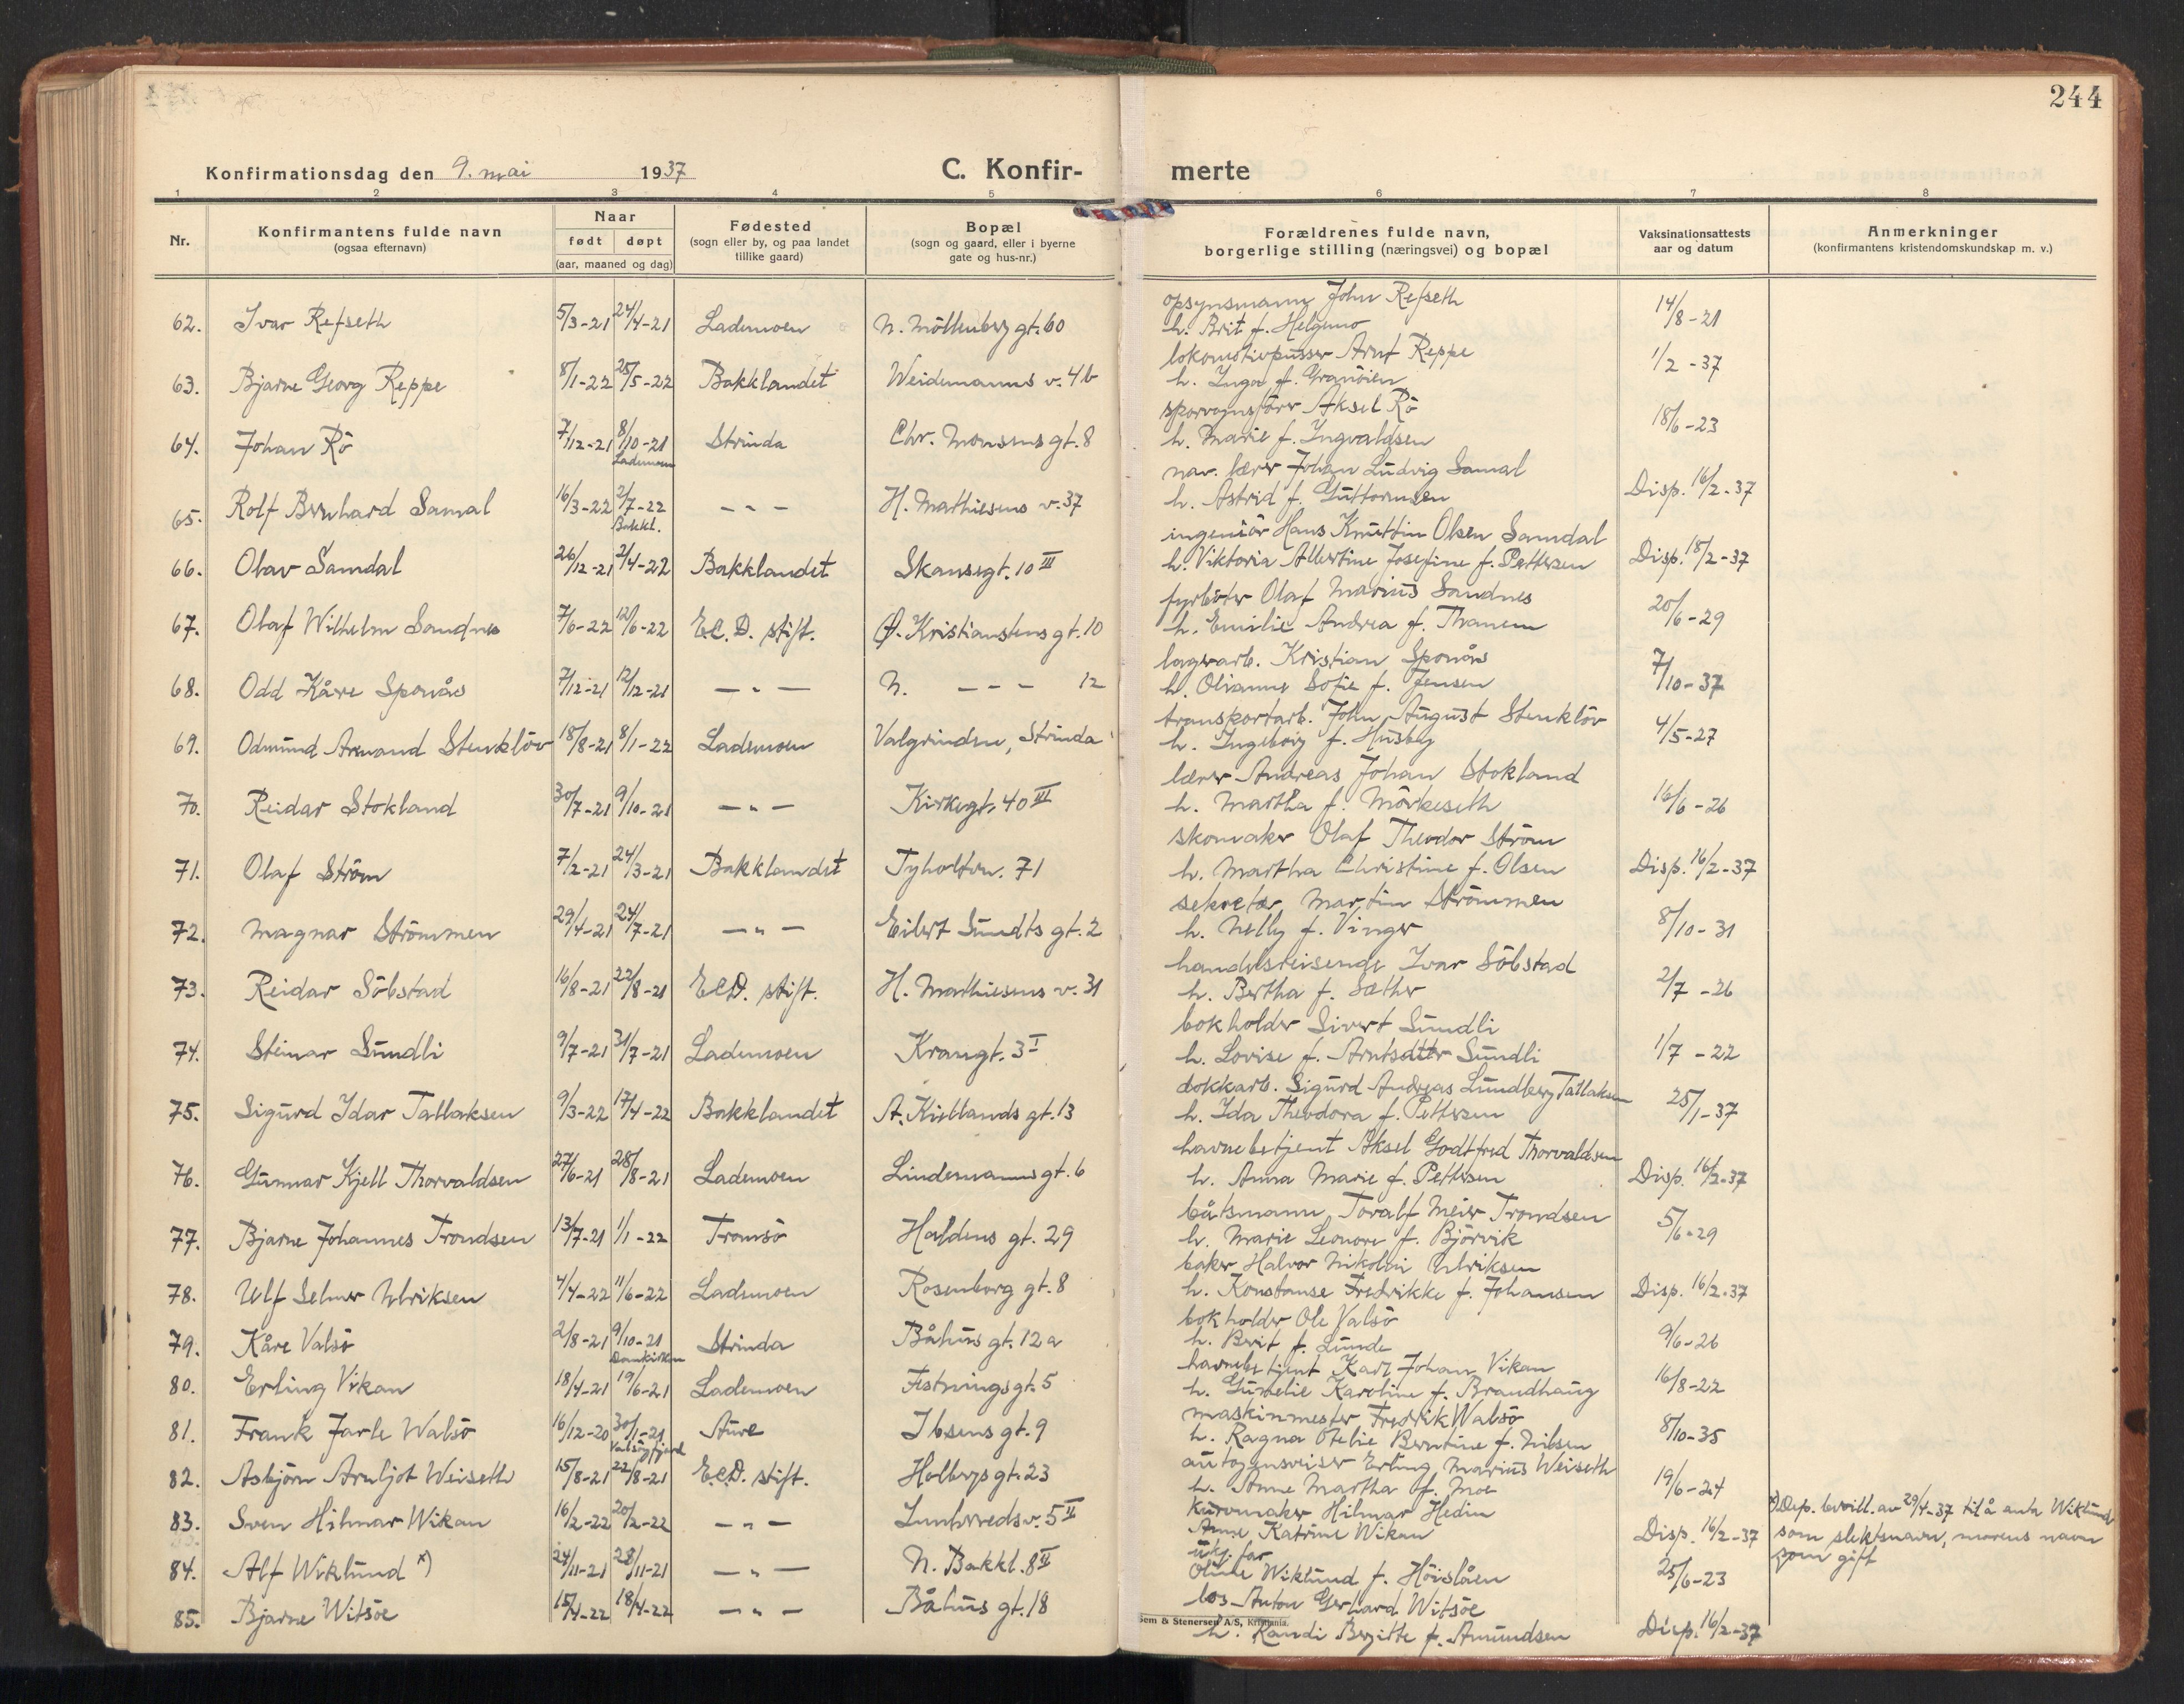 244
Konfirmationsdag den 9. mai 1937
C. Konfir- merte
1 2 3 4 5 6 7 8
Nr.
Konfirmantens fulde navn
(ogsaa efternavn)
Naar
født døpt
(aar, maaned og dag)
Fødested
(sogn eller by, og paa landet
tillike gaard)
Bopæl
(sogn og gaard, eller i byerne
gate og hus-nr.)
Forældrenes fulde navn,
borgerlige stilling (næringsvei) og bopæl
Vaksinationsattests
aar og datum
Anmerkninger
(konfirmantens kristendomskundskap m. v.)
62. Ivar Refseth 5/3-21 24/4-21 Lademoen N. Möllenberg gt. 60
opsynsmann John Refseth
h. Brit f. Helgemo
14/8-21
63. Bjarne Georg Reppe 8/1-22 25/5-22 Bakklandet Weidemanns v. 4b
lokomotivpusser Arnt Reppe
h. Inga f. Granöien
1/2-37
64. Johan Rö 7/12-21 8/10-21 Lademoen Strinda Chr. Monsens gt. 8
sporvognsförer Aksel Rö
h. Marie f. Ingvaldsen
18/6-23
65. Rolf Bernhard Samal 16/3-22 2/7-22 Bakkl. - - - H. Mathiesens v. 37
nav. lærer Johan Ludvig Samal
h. Astrid f. Guttormsen
Disp. 16/2-37
66. Olav Samdal 26/12-21 2/4-22 Bakklandet Skansegt. 10 III
ingeniör Hans Knuttin Olsen Samdal
h. Viktoria Albertine Josefine f. Pettersen
Disp. 18/2-37
67. Olaf Wilhelm Sandnes 7/6-22 12/6-22 E.C.D. stift. Ø. Kristianstens gt. 10
fyrböter Olaf Marius Sandnes
h. Emilie Andrea f. Thanem
20/6-29
68. Odd Kåre Sponås 7/12-21 12/12-21 — " — N. - - - 12
lagerarb. Kristian Sponås
h. Olianna Sofie f. Jensen
7/10-37
69. Odmund Armand Stenklöv 18/8-21 8/1-22 Lademoen Valgrinden, Strinda
transportarb. John August Stenklöv
h. Ingeborg f. Husby
4/5-27
70. Reidar Stokland 30/7-21 9/10-21 — " — Kirkegt. 40 III
lærer Andreas Johan Stokland
h. Martha f. Mörkeseth
16/6-26
71. Olaf Ström 7/2-21 24/3-21 Bakklandet Tyholtvn. 71
skomaker Olaf Theodor Ström
h. Martha Christine f. Olsen
Disp. 16/2-37
72. Magnar Strömmen 29/4-21 24/7-21 — " — Eilert Sundts gt. 2
sekretær Martin Strömmen
h. Nelly f. Vinger
8/10-31
73. Reidar Söbstad 16/8-21 22/8-21 E.C.D. stift. H. Mathiesens v. 31
handelsreisende Ivar Söbstad
h. Bertha f. Sæther
2/7-26
74. Steinar Sundli 9/7-21 31/7-21 Lademoen Krangt. 3 I
bokholder Sivert Sundli
h. Lovise f. Arntsdtter Sundli
1/7-22
75. Sigurd Idar Tallaksen 9/3-22 17/4-22 Bakklandet A. Kiellands gt. 13
dokkarb. Sigurd Andreas Lundberg Tallaksen
h. Ida Theodora f. Pettersen
25/1-37
76. Gunnar Kjell Thorvaldsen 27/6-21 28/8-21 Lademoen Lindemanns gt. 6
havnebetjent Aksel Godtfred Thorvaldsen
h. Anna Marie f. Pettersen
Disp. 16/2-37
77. Bjarne Johannes Trondsen 13/7-21 1/1-22 Tromsö Haldens gt. 29
båtsmann Toralf Meier Trondsen
h. Marie Leonore f. Björvik
5/6-29
78. Ulf Selmer Ulriksen 4/4-22 11/6-22 Lademoen Rosenborg gt. 8
baker Halvor Nikolai Ulriksen
h. Konstanse Fredrikke f. Johansen
Disp. 16/2-37
79. Kåre Valsö 2/8-21 9/10-21 Domkirken Strinda Båhus gt. 12a
bokholder Ole Valsö
h. Berit f. Lunde
9/6-26
80. Erling Vikan 18/4-21 19/6-21 Lademoen Festningsgt. 5
havnebetjent Karl Johan Vikan
h. Gunelie Karoline f. Brandhaug
16/8-22
81. Frank Jarle Walsö 16/12-20 30/1-21 Valsöyfjord Aure Ibsens gt. 9
maskinmester Fredrik Walsö
h. Ragna Otelie Berntine f. Nilsen
8/10-35
82. Asbjörn Arnljot Weiseth 15/8-21 22/8-21 E.C.D. stift. Holbergs gt. 23
autogensveiser Erling Marius Weiseth
h. Anne Martha f. Moe
19/6-24
83. Sven Hilmar Wikan 16/2-22 20/2-22 — " — Innherredsv. 5 II
Kurvmaker Hilmar Hedin
Anne Katrine Wikan
Disp. 16/2-37
84. Alf Wiklund x) 24/11-21 28/11-21 — " — N. Bakkl. 8 II
ukj. far
Oline Wiklund f. Höislåen
25/6-23
x) Dep. bevill. av 29/4-37 til å anta Wiklund
som slektsnavn, morens navn
som gift
85. Bjarne Witsöe 15/4-22 18/4-22 — " — Båhus gt. 18
los Anton Gerhard Witsöe
h. Randi Bergitte f. Amundsen
Disp. 16/2-37
Sem & Stenersen A/S, Kristiania.